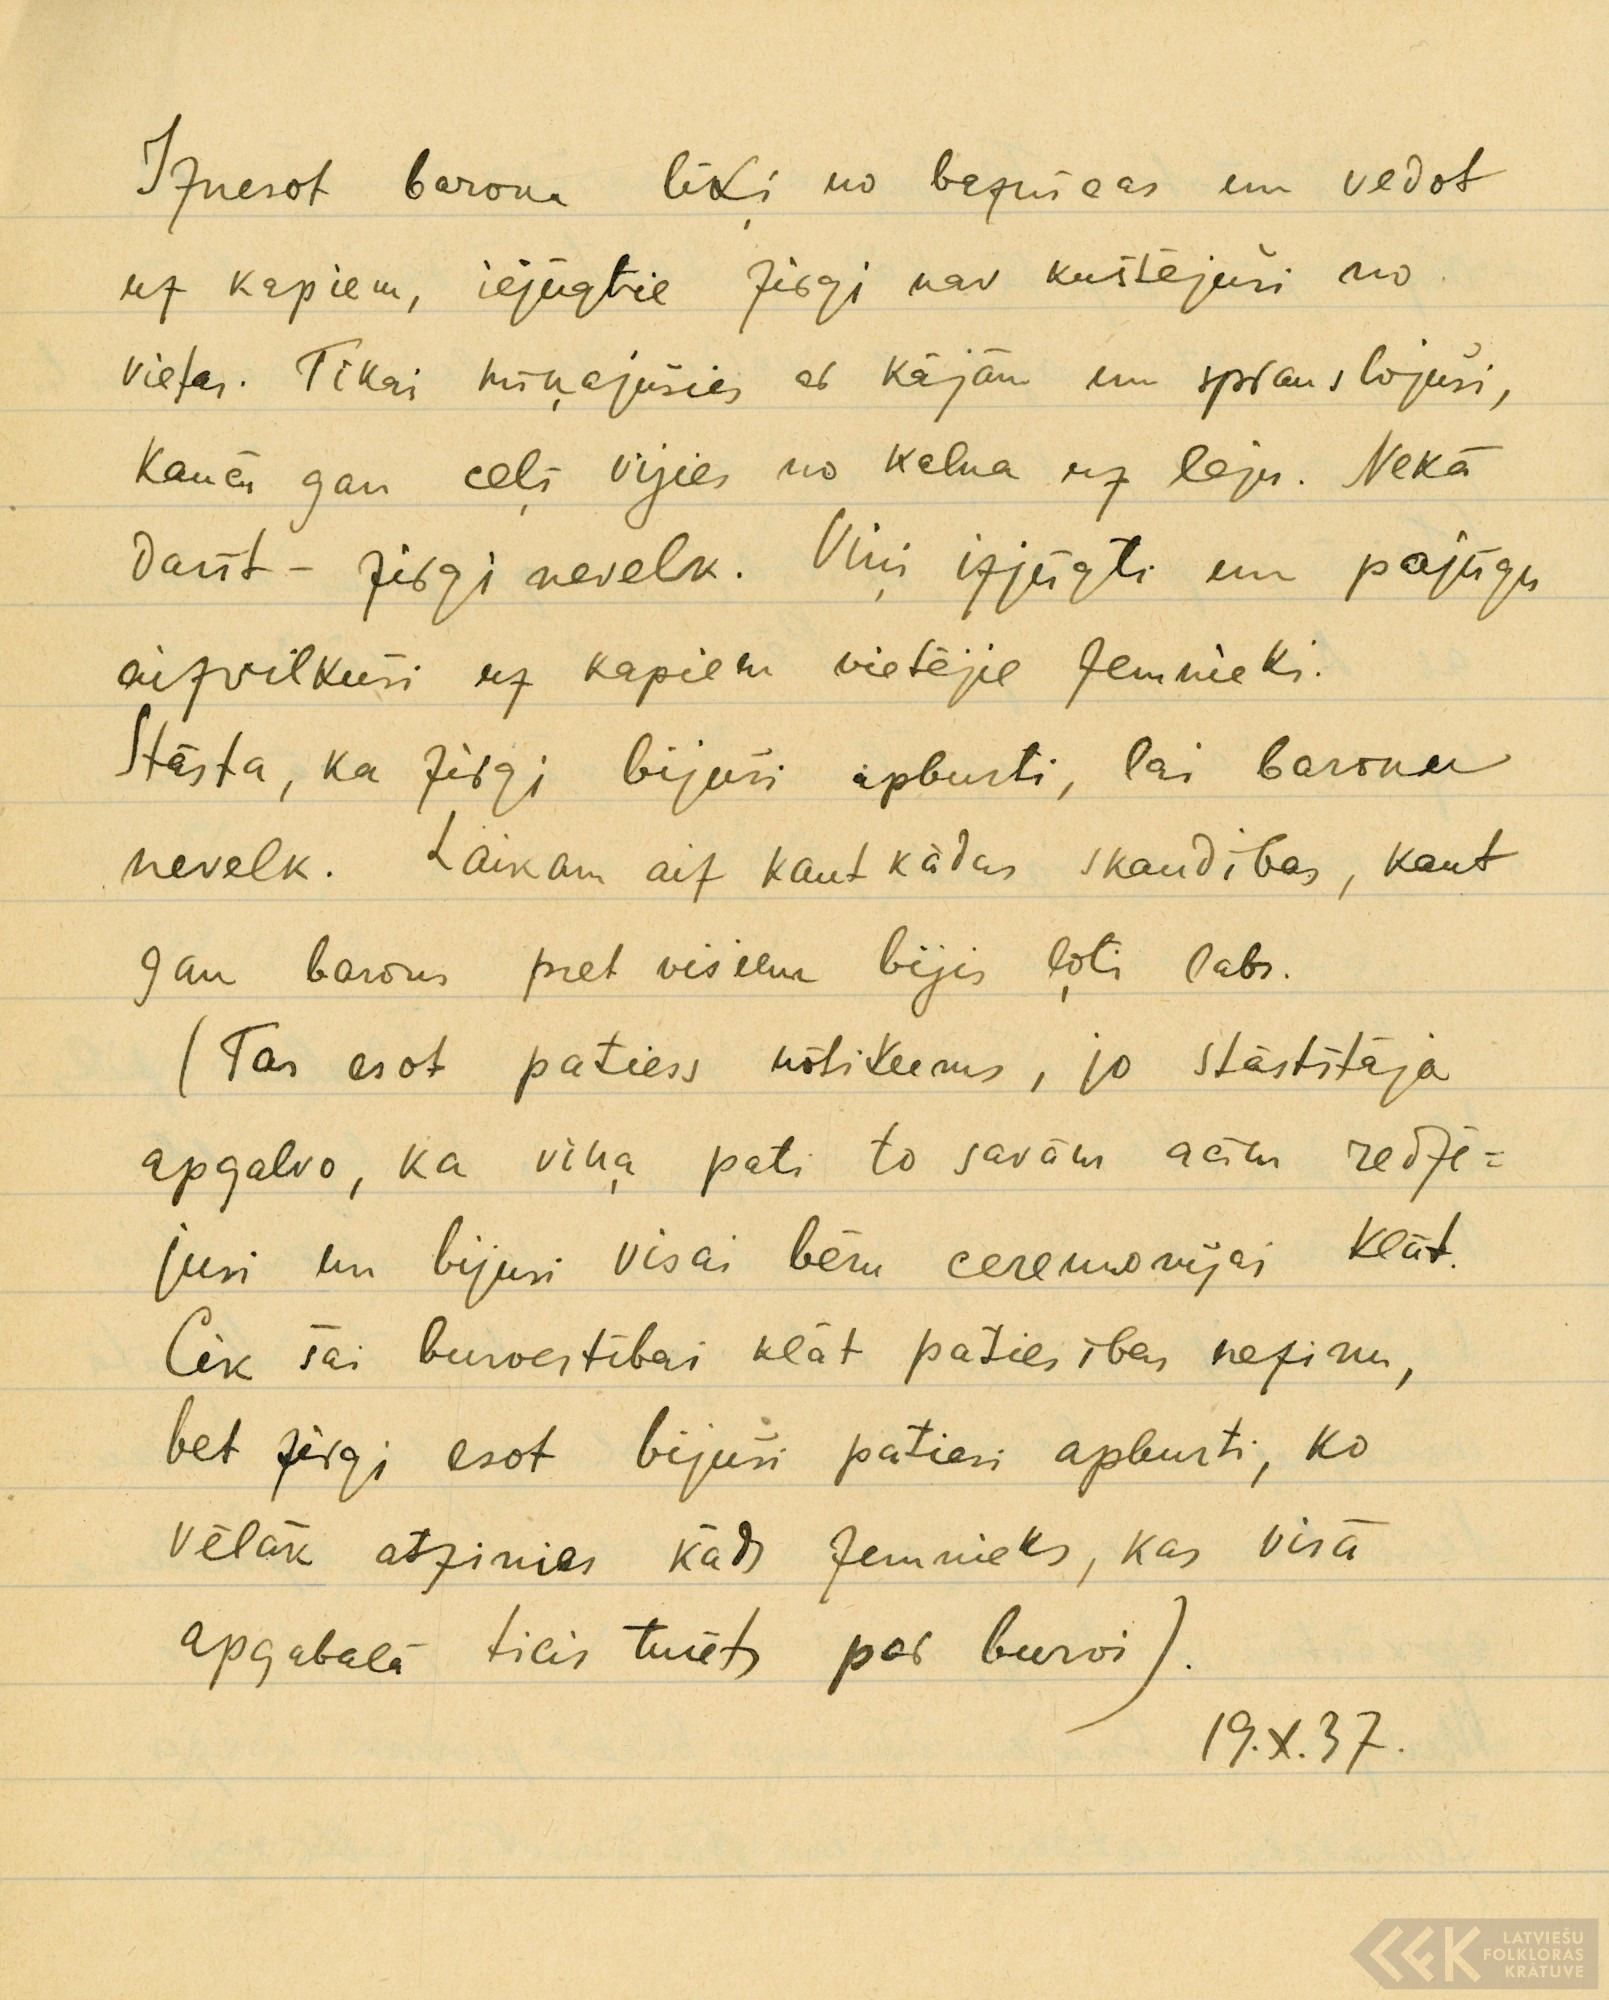 Iznesot barona līķi no baznīcas un vedot
uz kapiem, iejūgtie zirgi nav kustējuši no
vietas. Tikai mīņājušies ar kājām un sprauslojuši,
kaut gan ceļš vijies no kalna uz leju. Nekā
darīt – zirgi nevelk. Viņi izjūgti un pajūgu
aizvilkuši uz kapiem vietējie zemnieki.
Stāsta, ka zirgi bijuši apburti, lai baronu
nevelk. Laikam aiz kautkādas skaudības, kaut
gan barons pret visiem bijis ļoti labs.
(Tas esot patiess notikums, jo stāstītāja
apgalvo, ka viņa pati to savām acīm redzē=
jusi un bijusi visai bēru ceremonijai klāt.
Cik šai burvestībai klāt patiesības nezinu,
bet zirgi esot bijuši patiesi apburti, ko
vēlāk atzinies kāds zemnieks, kas visā
apgabalā ticis turēts par burvi).
19.X.37.
LATVIEŠU
FOLKLORAS
KRĀTUVE